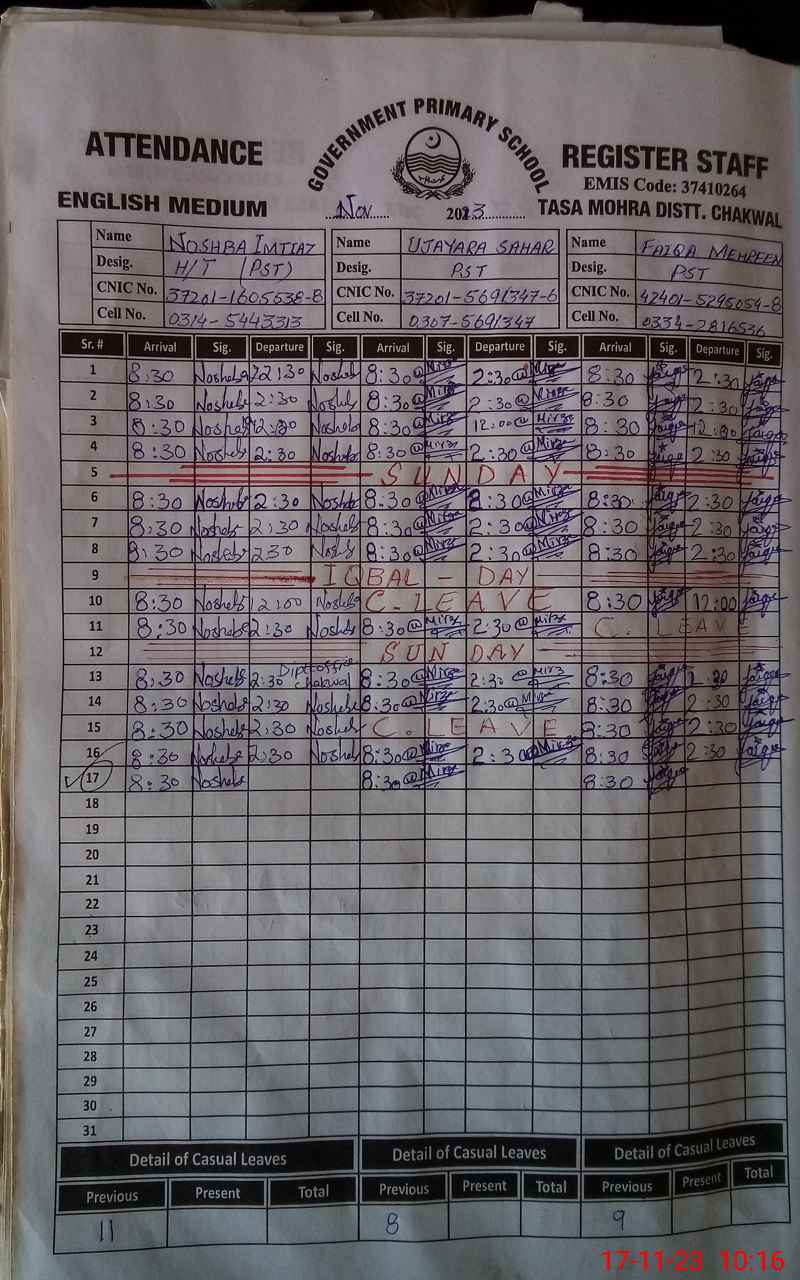 GOVERNMENT PRIMARY SCHOOL
ATTENDANCE REGISTER STAFF
EMIS Code: 37410264
ENGLISH MEDIUM Nov 2023 TASA MOHRA DISTT. CHAKWAL
Name NOSHBA IMTIAZ Name UJAYARA SAHAR Name FAIQA MEHREEN
Desig. H/T (PST) Desig. PST Desig. PST
CNIC No. 37201-1605638-8 CNIC No. 37201-5691347-6 CNIC No. 42401-5295054-8
Cell No. 0314-5443313 Cell No. 0307-5691347 Cell No. 0334-2816536
Sr. # Arrival Sig. Departure Sig. Arrival Sig. Departure Sig. Arrival Sig. Departure Sig.
1 8:30 Nosheba 2:30 Nosheba 8:30 @Mirza 2:30 @Mirza 8:30 Faiqa 2:30 Faiqa
2 8:30 Nosheba 2:30 Nosheba 8:30 @Mirza 2:30 @Mirza 8:30 Faiqa 2:30 Faiqa
3 8:30 Nosheba 12:30 Nosheba 8:30 @Mirza 12:00 @Mirza 8:30 Faiqa 12:00 Faiqa
4 8:30 Nosheba 2:30 Nosheba 8:30 @Mirza 2:30 @Mirza 8:30 Faiqa 2:30 Faiqa
5 SUNDAY
6 8:30 Nosheba 2:30 Nosheba 8:30 @Mirza 2:30 @Mirza 8:30 Faiqa 2:30 Faiqa
7 8:30 Nosheba 2:30 Nosheba 8:30 @Mirza 2:30 @Mirza 8:30 Faiqa 2:30 Faiqa
8 8:30 Nosheba 2:30 Nosheba 8:30 @Mirza 2:30 @Mirza 8:30 Faiqa 2:30 Faiqa
9 IQBAL - DAY
10 8:30 Nosheba 12:00 Nosheba C. LEAVE 8:30 Faiqa 12:00 Faiqa
11 8:30 Nosheba 2:30 Nosheba 8:30 @Mirza 2:30 @Mirza C. LEAVE
12 SUNDAY
13 8:30 Nosheba 2:30 Chakwal 8:30 @Mirza 2:30 @Mirza 8:30 Faiqa 2:30 Faiqa
14 8:30 Nosheba 2:30 Nosheba 8:30 @Mirza 2:30 @Mirza 8:30 Faiqa 2:30 Faiqa
15 8:30 Nosheba 2:30 Nosheba C. LEAVE 8:30 Faiqa 2:30 Faiqa
16 8:30 Nosheba 2:30 Nosheba 8:30 @Mirza 2:30 @Mirza 8:30 Faiqa 2:30 Faiqa
17 8:30 Nosheba 8:30 @Mirza 8:30 Faiqa
18
19
20
21
22
23
24
25
26
27
28
29
30
31
Detail of Casual Leaves Detail of Casual Leaves Detail of Casual Leaves
Previous Present Total Previous Present Total Previous Present Total
11 8 9
17-11-23 10:16